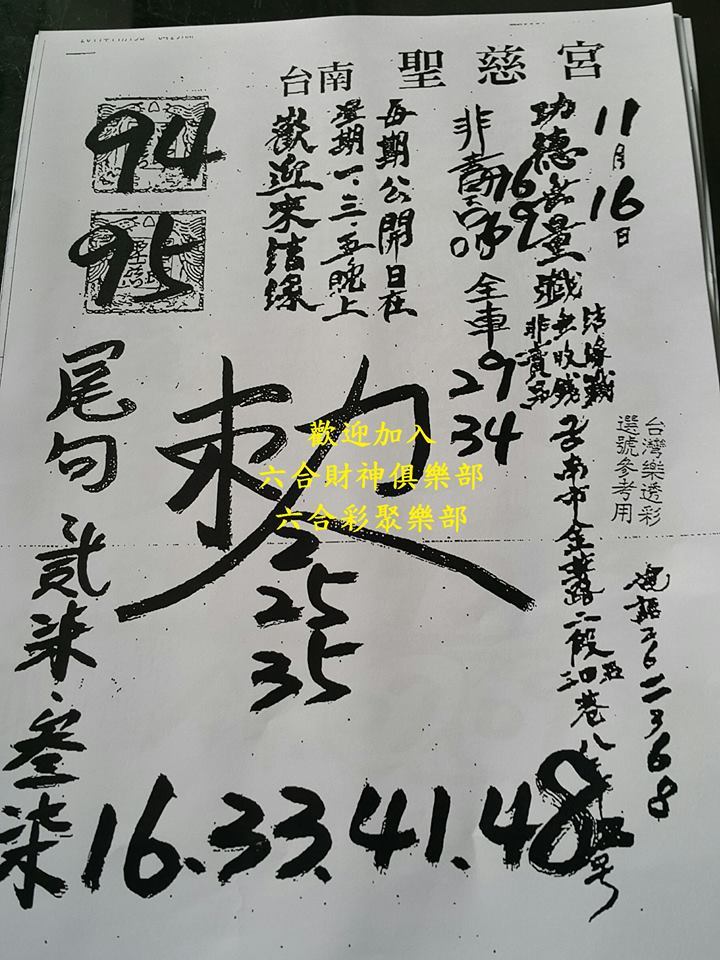 台南 聖慈宮
11月16日
功德無量
結緣
無收錢
非賣品
非賣品
16
9
全車
29
34
每期公開日在
星期一、三、五晚上
歡迎來結緣
94
95
台灣樂透彩
選號參考用
勅
歡迎加入
六合財神俱樂部
六合彩聚樂部
2
25
35
尾勻
貳柒、叄柒
16.33.41.48